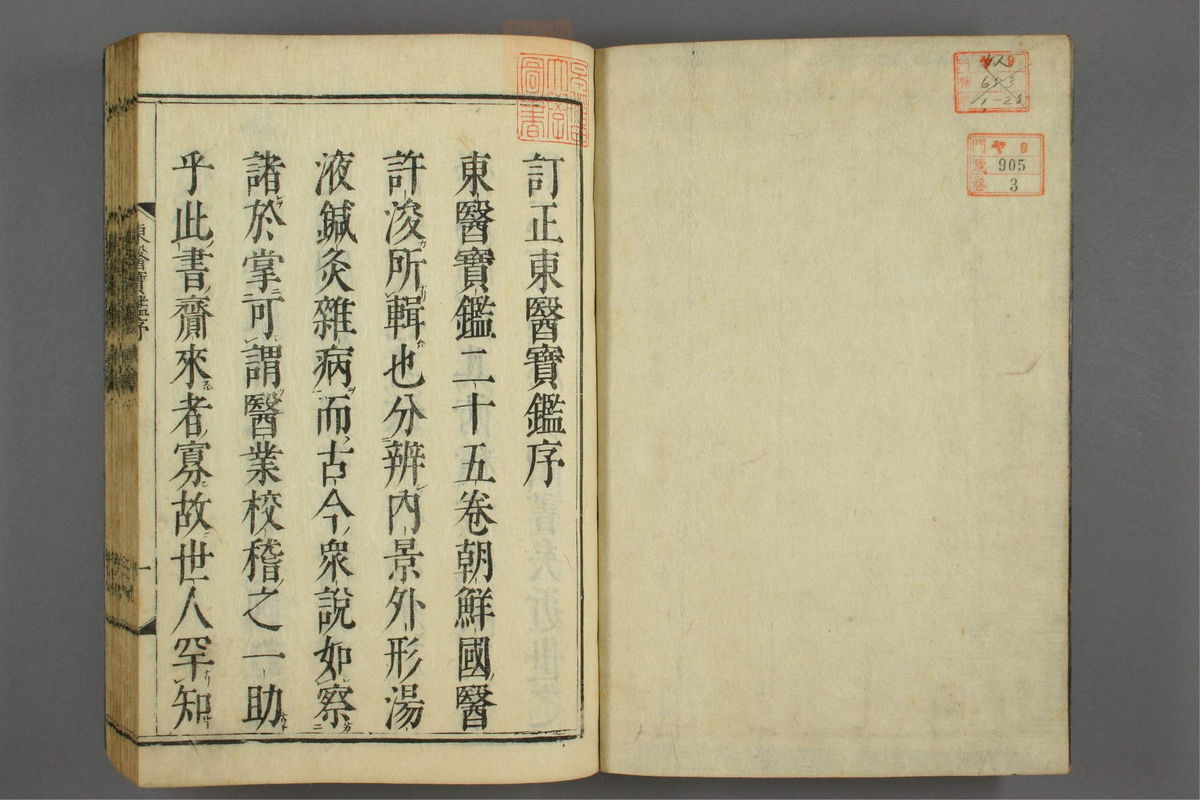 訂正東醫寶鑑序
東醫寶鑑二十五卷朝鮮國醫
許浚所輯也分辨內景外形湯
液鍼灸雜病而古今衆說如察
諸於掌可謂醫業校稽之一助
乎此書齎來者寡故世人罕知
東醫寶鑑序
一
圖書
門
ヤ 9
號
905
卷
3